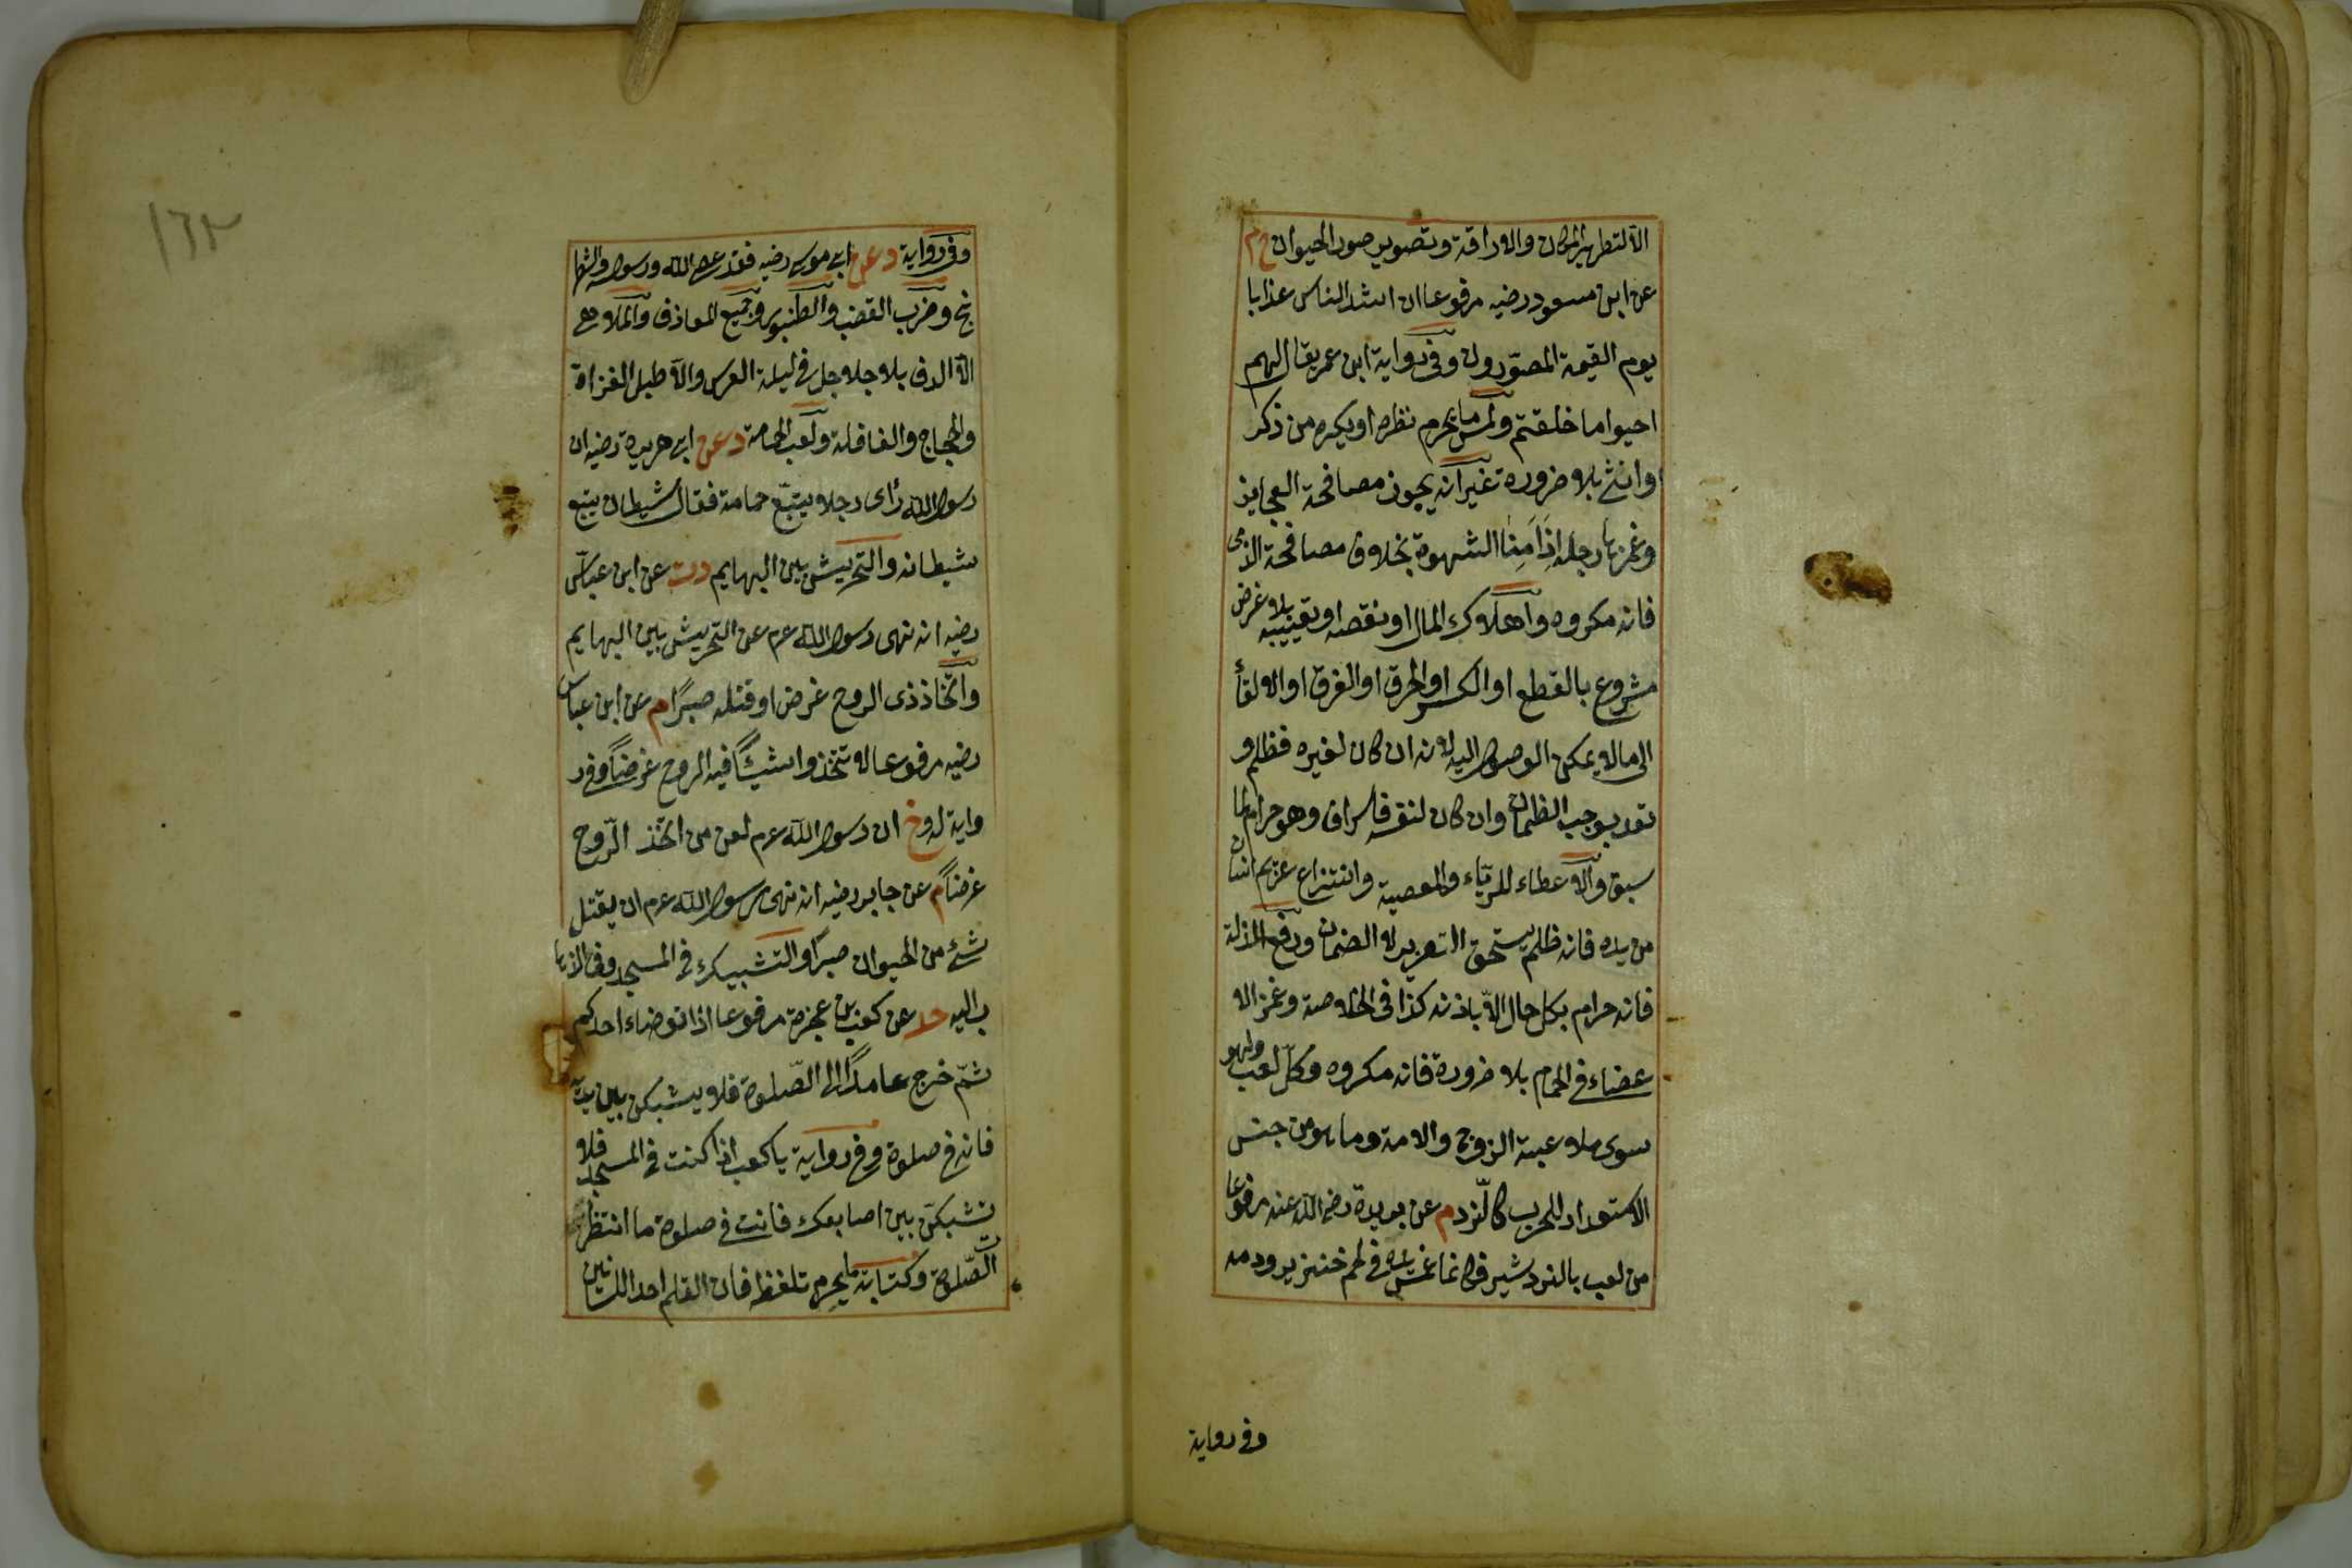 الا لتطهير المكان والاراقة وتصوير صور الحيوان خ م
عن ابن مسعود رضيه مرفوعا ان اشد الناس عذابا
يوم القيمة المصورون وفى رواية ابن عمر يقال لهم
احيوا ما خلقتم ولمس ما يحرم نظره او يكره من ذكر
وانثى بلا ضرورة غير انه يجوز مصافحة العجايز
وغمزها رجله اذا امنا الشهوة بخلاف مصافحة الذمى
فانه مكروه واهلاك المال او نقصه او تعييبه بلا غرض
مشروع بالقطع او الكسر او الحرق او الغرق او الالقاء
الى ما لا يمكن الوصول اليه لانه ان كان لغيره فظلم و
تعد يوجب الضمان وان كان لنفسه فاسراف وهو حرام لما
سبق والاعطاء للرياء والمعصية وانتزاع غريم انسان
من يده فانه ظلم يستحق التعزير لا الضمان ورفع المذلة
فانه حرام بكل حال الا باذنه كذا فى الخلاصة وغمز الا
عضاء فى الحمام بلا ضرورة فانه مكروه وكل لعب ولهو
سوى ملاعبة الزوج والامة وما هو من جنس
الاستعداد للحرب كالنرد م عن بريدة رضى الله عنه مرفوعا
من لعب بالنردشير فكانما غمس يده فى لحم خنزير ودمه
وفى رواية
١٦٢
وفى رواية د عن ابى موسى رضيه فقد عصى الله ورسوله والشطر
نج وضرب القضيب والطنبور وجميع المعازف والملاهى
الا الدف بلا جلاجل فى ليلة العرس والا طبل الغزاة
والحجاج والقافلة ولعب الحمامة د عن ابى هريرة رضيه ان
رسول الله رأى رجلا يتبع حمامة فقال شيطان يتبع
شيطانه والتحريش بين البهايم د ت عن ابن عباس
رضيه انه نهى رسول الله عم عن التحريش بين البهايم
واتخاذ ذى الروح غرضا او قتله صبرا م عن ابن عباس
رضيه مرفوعا لا تتخذوا شيئا فيه الروح غرضا وفى ر
واية له وخ ان رسول الله عم لعن من اتخذ الروح
غرضا م عن جابر رضيه انه نهى رسول الله عم ان يقتل
شئ من الحيوان صبرا والتشبيك فى المسجد وفى الذها
ب اليه حد عن كعب بن عجرة مرفوعا اذا توضاء احدكم
ثم خرج عامدا الى الصلوة فلا يشبكن بين يديه
فانه فى صلوة وفى رواية يا كعب اذا كنت فى المسجد فلا
تشبكن بين اصابعك فانت فى صلوة ما انتظرت
الصلوة وكتابة ما يحرم تلفظه فان القلم احد اللسانين